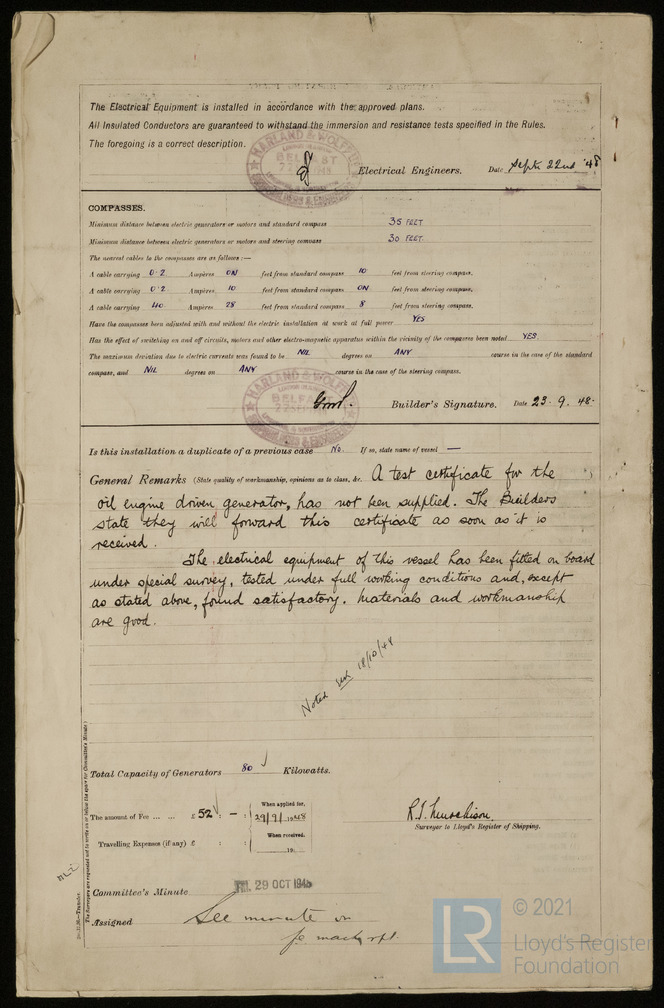 The Electrical Equipment is installed in accordance with the approved plans.
All Insulated Conductors are guaranteed to withstand the immersion and resistance tests specified in the Rules.
The foregoing is a correct description.
HARLAND & WOLFF
BELFAST
Electrical Engineers. Date Sept 22nd '48
COMPASSES.
Minimum distance between electric generators or motors and standard compass 35 FEET
Minimum distance between electric generators or motors and steering compass 30 FEET.
The nearest cables to the compasses are as follows:—
A cable carrying 0.2 Ampères ON feet from standard compass 10 feet from steering compass.
A cable carrying 0.2 Ampères 10 feet from standard compass ON feet from steering compass.
A cable carrying 40 Ampères 28 feet from standard compass 8 feet from steering compass.
Have the compasses been adjusted with and without the electric installation at work at full power YES
Has the effect of switching on and off circuits, motors and other electro-magnetic apparatus within the vicinity of the compasses been noted YES
The maximum deviation due to electric currents was found to be NIL degrees on ANY course in the case of the standard
compass, and NIL degrees on ANY course in the case of the steering compass.
HARLAND & WOLFF
BELFAST
Builder's Signature. Date 23.9.48.
Is this installation a duplicate of a previous case No. If so, state name of vessel —
General Remarks (State quality of workmanship, opinions as to class, &c. A test certificate for the
oil engine driven generator, has not been supplied. The Builders
state they will forward this certificate as soon as it is
received.
The electrical equipment of this vessel has been fitted on board
under special survey, tested under full working conditions and, except
as stated above, found satisfactory. Materials and workmanship
are good.
Noted 18/10/48
Total Capacity of Generators 80 Kilowatts.
The amount of Fee ... ... £ 52 : — :
When applied for,
29/9/1948
When received,
Travelling Expenses (if any) £ : :
19
R.J. Murchison.
Surveyor to Lloyd's Register of Shipping.
Committee's Minute FRI. 29 OCT 1948
Assigned See minute on
fe mach rpt.
© 2021
LR Lloyd's Register
Foundation